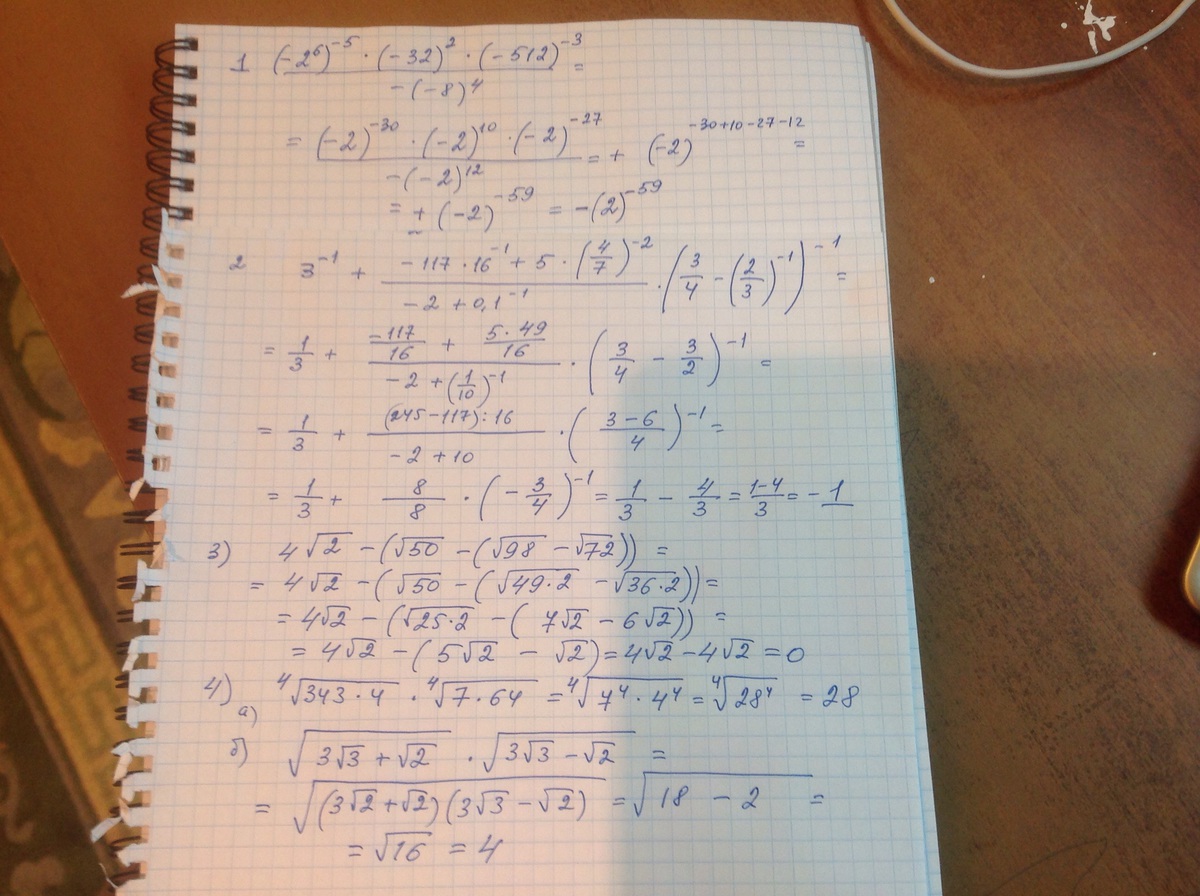 1 ((-2⁶)⁻⁵ · (-32)² · (-512)⁻³) / (-(-8)⁴) =
= ((-2)⁻³⁰ · (-2)¹⁰ · (-2)⁻²⁷) / (-(-2)¹²) = + (-2)^(-30+10-27-12) =
= + (-2)⁻⁵⁹ = -(2)⁻⁵⁹
2 3⁻¹ + (-117 · 16⁻¹ + 5 · (4/7)⁻²) / (-2 + 0,1⁻¹) · (3/4 - (2/3)⁻¹)⁻¹ =
= 1/3 + (-117/16 + 5·49/16) / (-2 + (1/10)⁻¹) · (3/4 - 3/2)⁻¹ =
= 1/3 + ((245-117):16) / (-2+10) · ((3-6)/4)⁻¹ =
= 1/3 + 8/8 · (-3/4)⁻¹ = 1/3 - 4/3 = (1-4)/3 = -1
3) 4√2 - (√50 - (√98 - √72)) =
= 4√2 - (√50 - (√(49·2) - √(36·2))) =
= 4√2 - (√(25·2) - (7√2 - 6√2)) =
= 4√2 - (5√2 - √2) = 4√2 - 4√2 = 0
4) а) ⁴√(343·4) · ⁴√(7·64) = ⁴√(7⁴·4⁴) = ⁴√(28⁴) = 28
б) √(3√3 + √2) · √(3√3 - √2) =
= √((3√2 + √2)(3√3 - √2)) = √(18 - 2) =
= √16 = 4